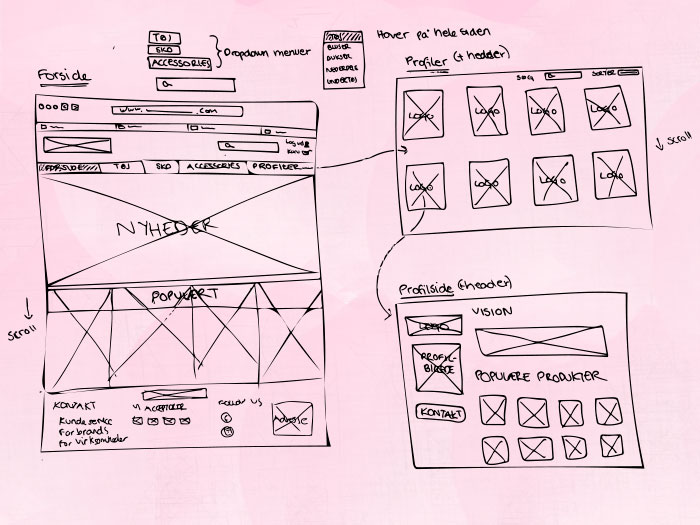 TØJ
SKO
ACCESSORIES
Dropdown menuer
TØJ
BLUSER
BUKSER
NEDERDELE
UNDERTØJ
Hover på hele siden
Forside
www. .com
Log ind
Kurv
FORSIDE
TØJ
SKO
ACCESSORIES
PROFILER
NYHEDER
POPULÆRT
scroll
KONTAKT
Kundeservice
For brands
For virksomheder
VI ACCEPTERER
FOLLOW US
Adresse
Profiler (+ header)
SØG
SORTER
LOGO
LOGO
LOGO
LOGO
LOGO
LOGO
LOGO
LOGO
scroll
Profilside (+header)
LOGO
PROFIL-
BILLEDE
KONTAKT
VISION
POPULÆRE PRODUKTER